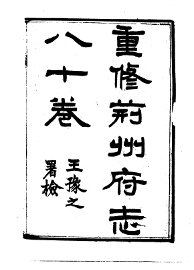 重修荊州府志
八十卷
王豫之
署檢